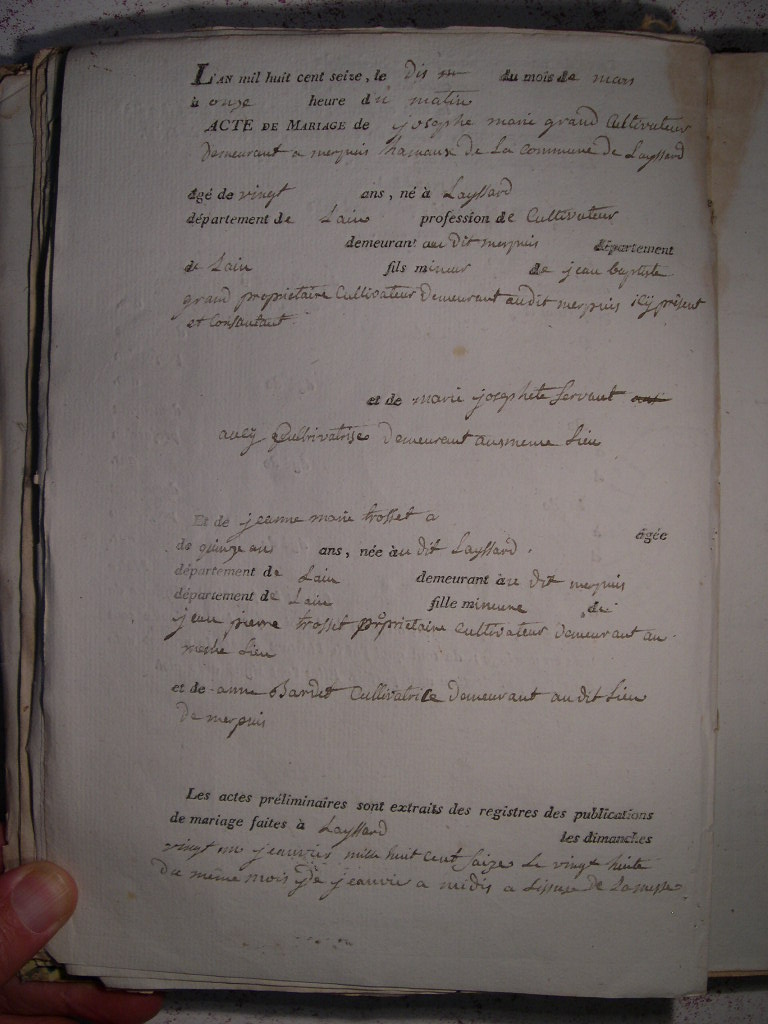 L'AN mil huit cent seize, le dis du mois de mars
à onze heure du matin
ACTE DE MARIAGE de josephe marie grand Cultivateur
demeurant a merpuis hamaux de La Commune de Layssard
âgé de vingt ans, né à Layssard
département de Lain profession de Cultivateur
demeurant au dit merpuis département
de Lain fils mineur de jean baptiste
grand proprietaire Cultivateur demeurant audit merpuis icy présent
et Consantant
et de marie josephete Servant
aucy Cultrivatrise demeurant ausmeme Lieu
Et de jeanne marie trosset a
âgée
de quinze an ans, née à du dit Layssard.
département de Lain demeurant à au dit merpuis
département de Lain fille mineure de
jean pierre trosset propriétaire Cultivateur demeurant au
meshe Lieu
et de anne Bardet Cultivatrice demeurant au dit Lieu
De merpuis
Les actes préliminaires sont extraits des registres des publications
de mariage faites à Layssard les dimanches
vingt un jeauvier mille huit Cent saize Le vingt huite
Du même mois de jeauvie a midis a Lissue de Lamesse